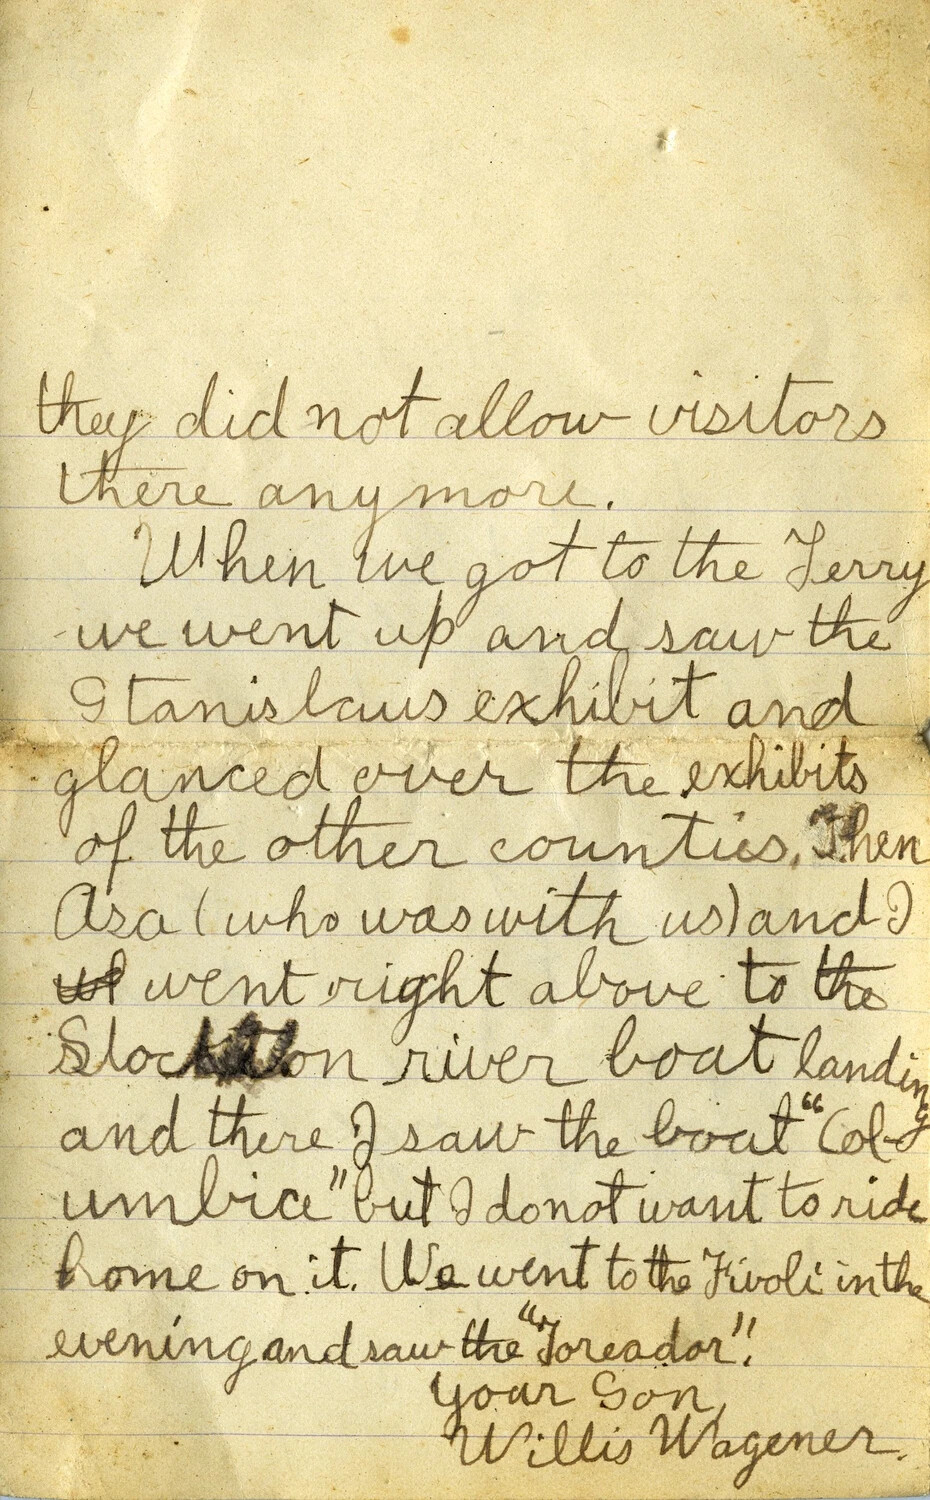 they did not allow visitors
there anymore.
When we got to the Ferry
we went up and saw the
Stanislaus exhibit and
glanced over the exhibits
of the other counties. Then
Asa (who was with us) and I
went right above to the
Stockton river boat landing
and there I saw the boat "Col-
umbia" but I do not want to ride
home on it. We went to the Tivoli in the
evening and saw the "Toreador".
Your Son,
Willis Wagener.